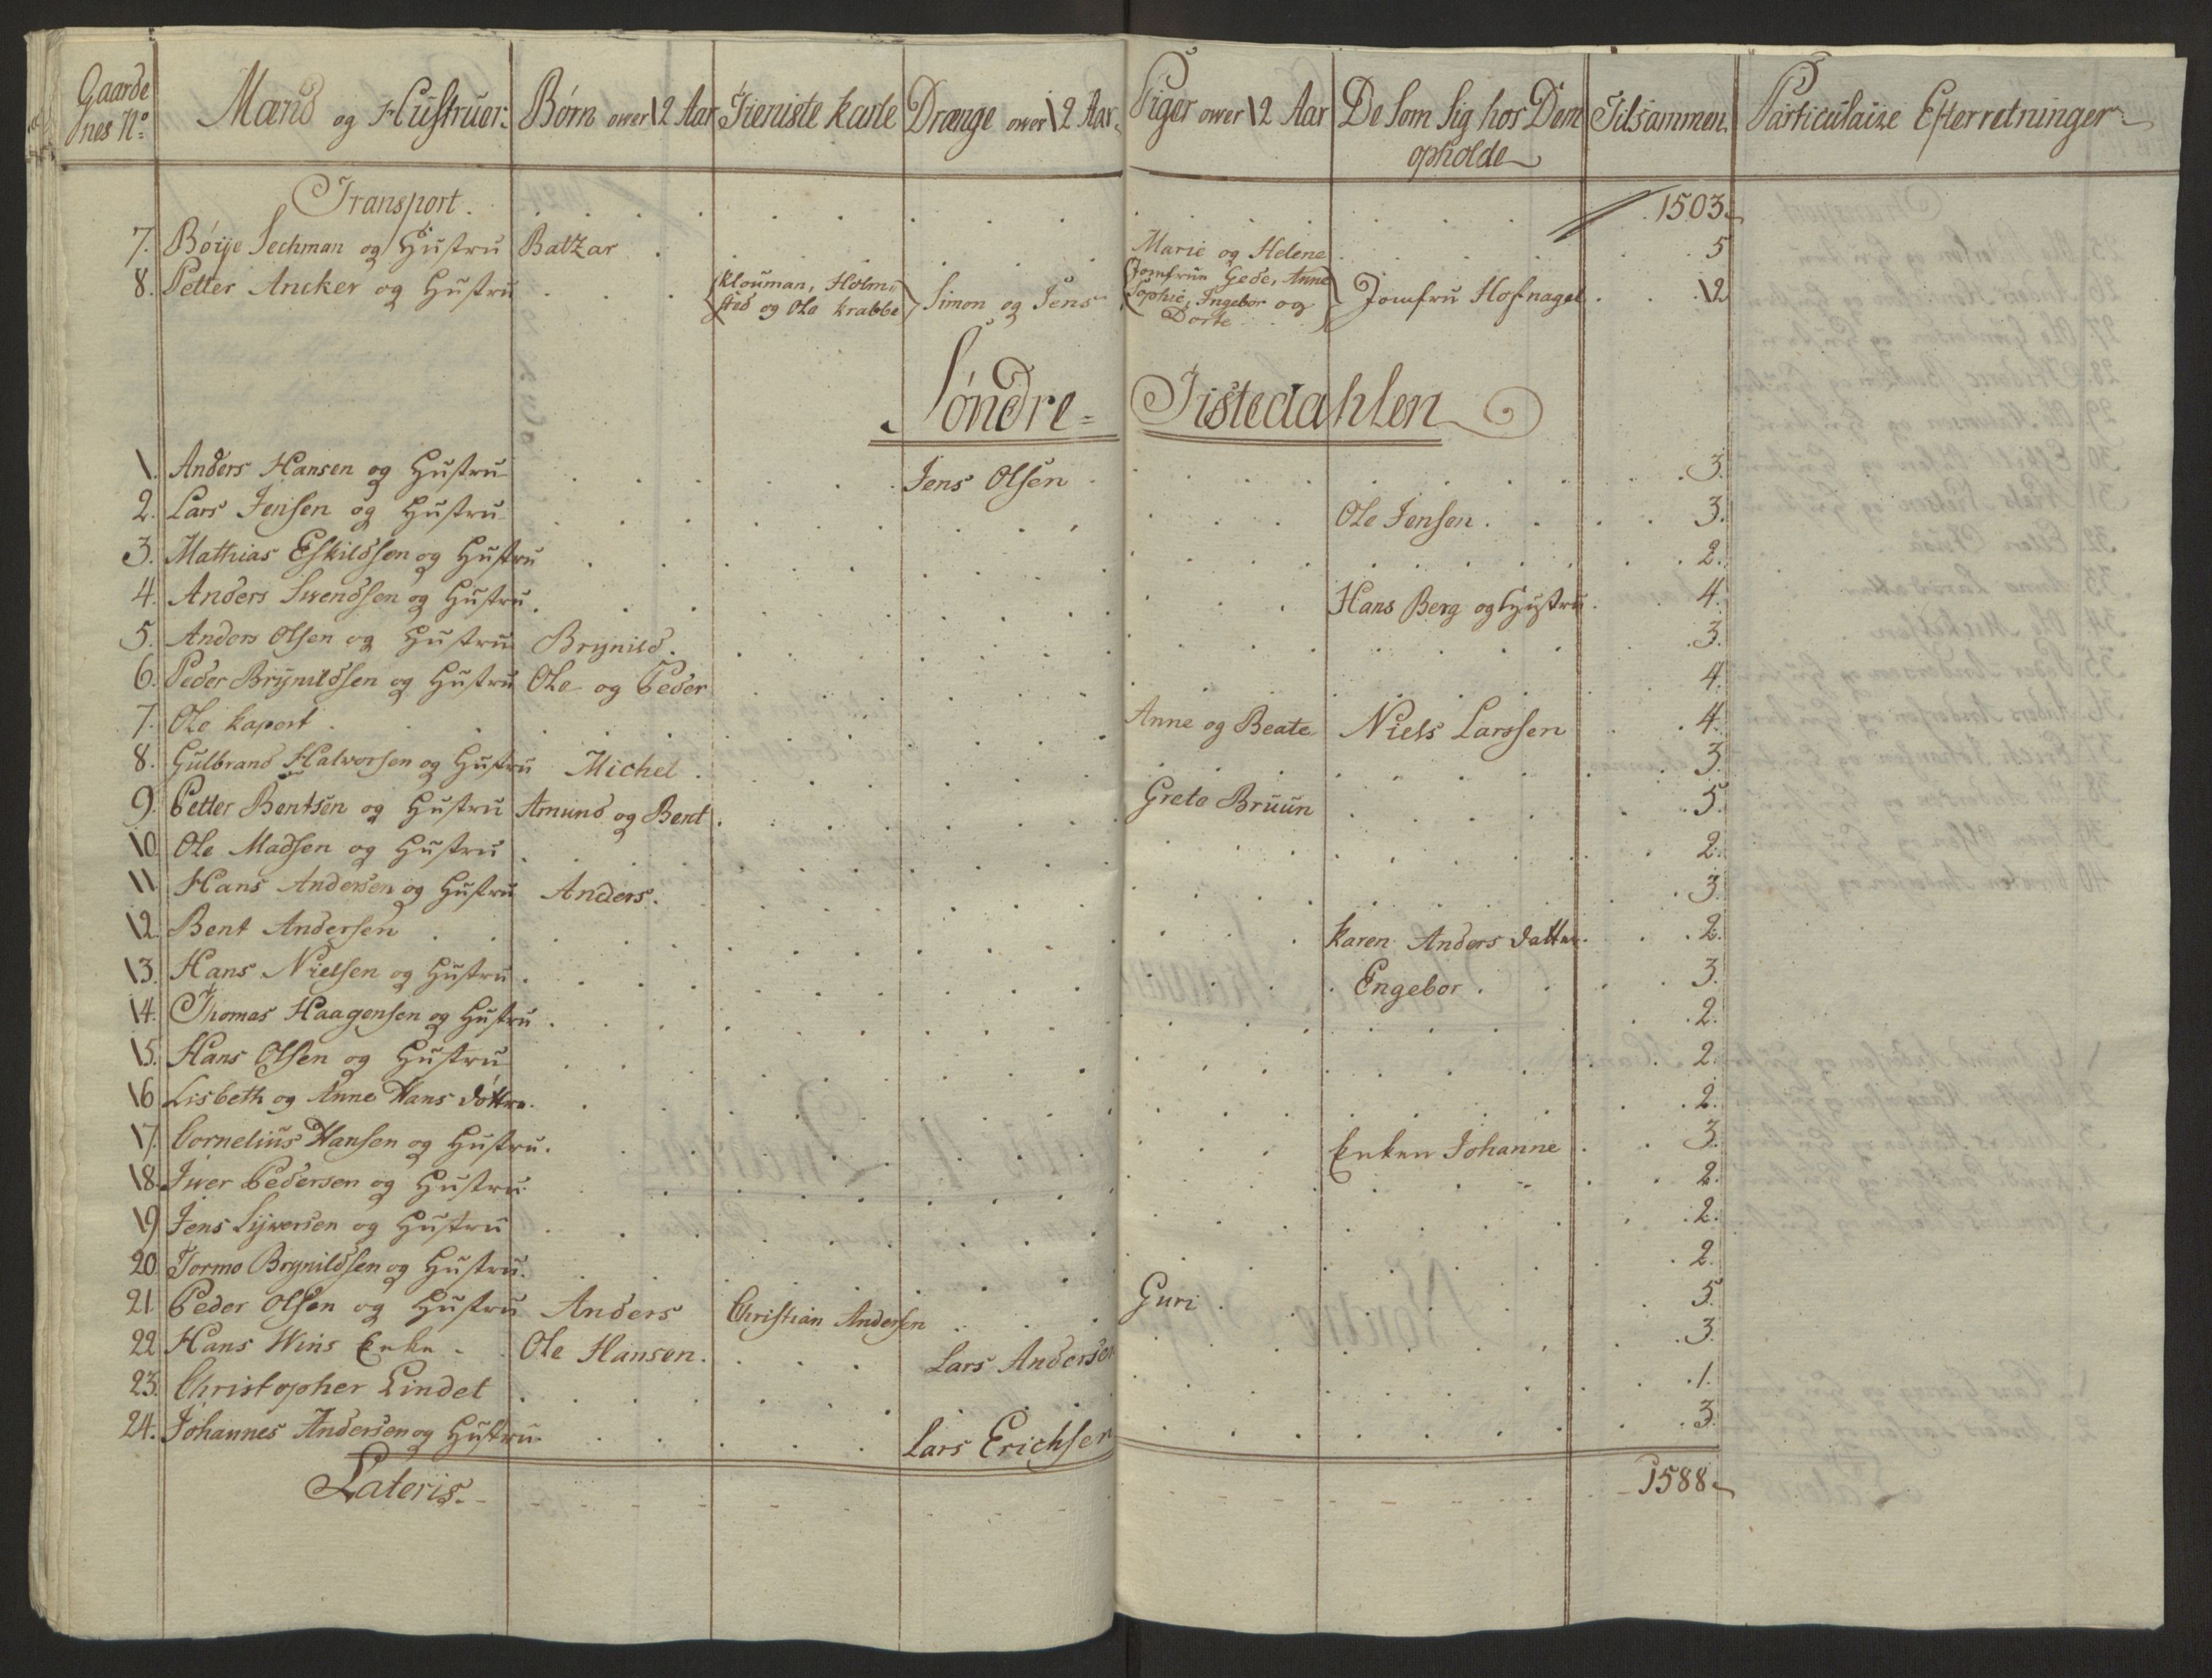 Gaarde nes No. Mænd og Hustruer. Børn over 12 Aar Tieniste karle Drænge over 12 Aar. Piger over 12 Aar De Som Sig hos Dem opholde Tilsammen. Particulaire Efterretninger
Transport. 1503
7. Böije Sechman og Hustru Baltzar Marie og Helene 5
8. Petter Ancker og Hustru Klouman, Holmsted og Ola Krabbe Simon og Jens Jomfrue Gede, Anne Sophie, Ingebor og Dorte Jomfru Hofnagel 12
Söndre= Tistedahlen
1. Anders Hansen og Hustru Jens Olsen 3.
2. Lars Jensen og Hustru Ole Jensen. 3.
3. Mathias Eskildsen og Hustru 2.
4. Anders Swendsen og Hustru. Hans Berg og Hustru 4.
5. Anders Olsen og Hustru Brynild. 3.
6. Peder Brÿnildsen og Hustru Ole og Peder 4.
7. Ole kaport Anne og Beate Niels Larssen 4.
8. Gulbrand Halvorsen og Hustru Michel. 3.
9. Petter Bentsen og Hustru Amund og Bent Grete Bruun 5.
10. Ole Madsen og Hustru 2.
11. Hans Andersen og Hustru Anders. 3.
12. Bent Andersen karen Anders datter. 2.
13. Hans Nielsen og Hustru Engebor. 3.
14. Thomas Haagensen og Hustru 2.
15. Hans Olsen og Hustru 2.
16. Lisbeth og Anne Hans döttre. 2.
17. Cornelius Hansen og Hustru. Enken Johanne 3.
18. Iwer Pedersen og Hustru 2.
19. Jens Sÿwersen og Hustru 2.
20. Tormo Brynildsen og Hustru. 2.
21. Peder Olsen og Hustru Anders Christian Andersen Guri 5.
22. Hans Wins Enke Ole Hansen. Lars Andersen 3.
23. Christopher Lindet 1.
24. Johannes Andersen og Hustru Lars Erichsen 3.
Lateris. 1588